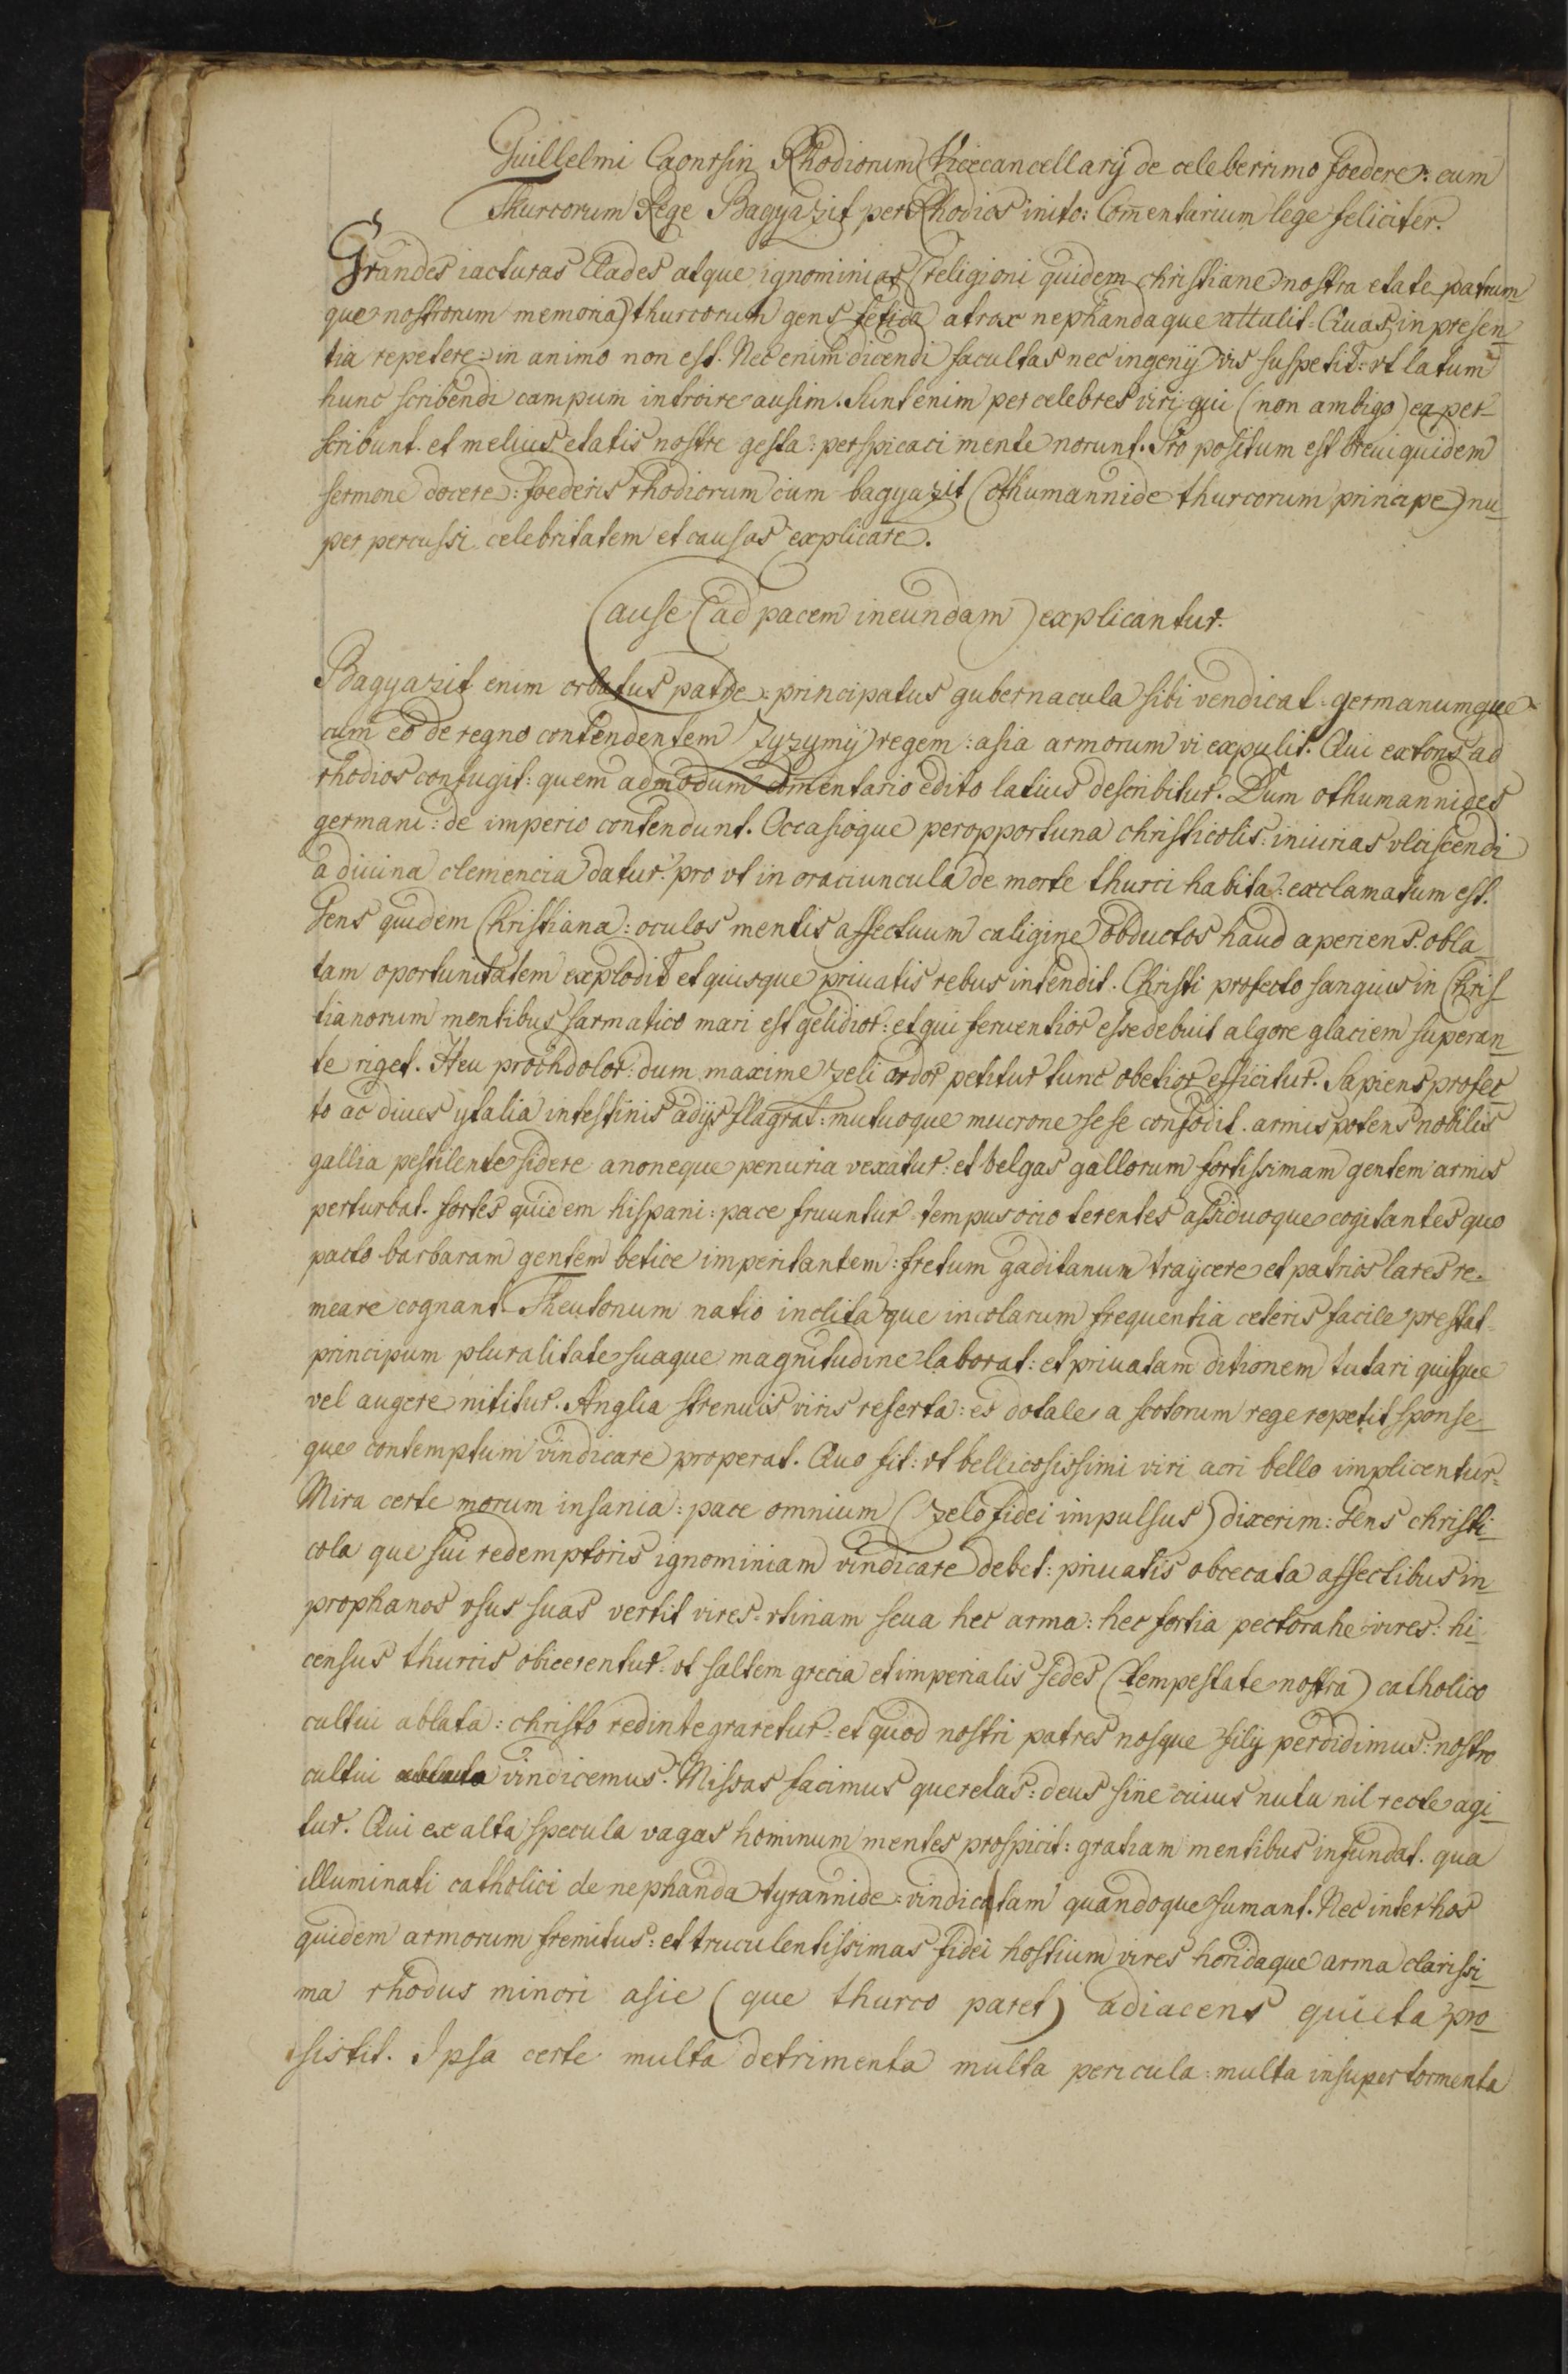 Guillelmi Caoursin Rhodiorum Vicecancellarij de celeberrimo foedere: cum
Thurcorum Rege Bagyazit per Rhodios inito: Com̄entarium lege feliciter.
Grandes iacturas Clades atque ignominias (religioni quidem christiane nostra etate patrum
que nostrorum memoria) thurcorum gens fetida atrox nephandaque attulit: Quas in presen_
tia repetere: in animo non est. Nec enim dicendi facultas nec ingenij vis suspetit: vt latum
hunc scribendi campum introire ausim. Sunt enim per celebres viri qui (non ambigo) ea per_
scribunt. et melius etatis nostre gesta: perspicaci mente norunt. Pro positum est breui quidem
sermone docere: foederis rhodiorum cum bagyazit (othumannide thurcorum principe) nu_
per percussi celebritatem et causas explicare.
Cause (ad pacem ineundam) explicantur.
Bagyazit enim orbatus patre: principatus gubernacula sibi vendicat: germanumque
cum eo de regno contendentem Zyzymij regem: asia armorum vi expulit. Qui extons ad
rhodios confugit: quem admodum com̄entario edito latius describitur. Dum othumannides
germani: de imperio contendunt. Occasioque peropportuna christicolis: iniurias vlciscendi
a diuina clemencia datur: pro vt in oraciuncula de morte thurci habita: exclamatum est.
Gens quidem Christiana: oculos mentis affectuum caligine obductos haud aperiens. obla_
tam oportunitatem explodit et quisque priuatis rebus intendit. Christi profecto sanguis in Chris_
tianorum mentibus sarmatico mari est gelidior: et qui feruentior esse debuit algore glaciem superan_
te riget. Heu prochdolor: dum maxime zeli ardor petitur tunc obetior efficitur. Sapiens profec_
to ac diues ytalia intestinis adijs flagrat: mutuoque mucrone sese confodit. armis potens nobilis
gallia pestilente sidere anoneque penuria vexatur: et belgas gallorum fortissimam gentem armis
perturbat. fortes quidem hispani: pace fruuntur tempus ocio terentes assiduoque cogitantes quo
pacto barbaram gentem betice imperitantem: fretum gaditanum traijcere et patrios lares re_
meare cognant. Theutonum natio inclita que incolarum frequentia ceteris facile prestat
principum pluralitate suaque magnitudine laborat: et priuatam ditionem tutari quisque
vel augere nititur. Anglia strenuis viris referta: es dotale a scotorum rege repetit sponse_
que contemptum vindicare properat. Quo fit: vt bellicosissimi viri acri bello implicentur:
Mira certe morum insania: pace omnium (zelo fidei impulsus) dixerim: Gens christi_
cola que sui redemptoris ignominiam vindicare debet: priuatis obcecata affectibus in
prophanos vsus suas vertit vires. vtinam seua hec arma: hec fortia pectora he vires: hi_
census thurcis obicerentur: vt saltem grecia et imperialis sedes (tempestate nostra) catholico
cultui ablata: christo redintegraretur: et quod nostri patres nosque filij perdidimus: nostro
cultui vindicemus. Missas facimus querelas: deus sine cuius nutu nil recte agi_
tur. Qui ex alta specula vagas hominum mentes prospicit: gratiam mentibus infundat. qua
illuminati catholici de nephanda tyrannide: vindictam quandoque sumant. Nec inter hos
quidem armorum fremitus: et truculentissimas fidei hostium vires horridaque arma clarissi_
ma rhodus minori asie (que thurco paret) adiacens quieta pro_
sistit. Ipsa certe multa detrimenta multa pericula: multa insuper tormenta